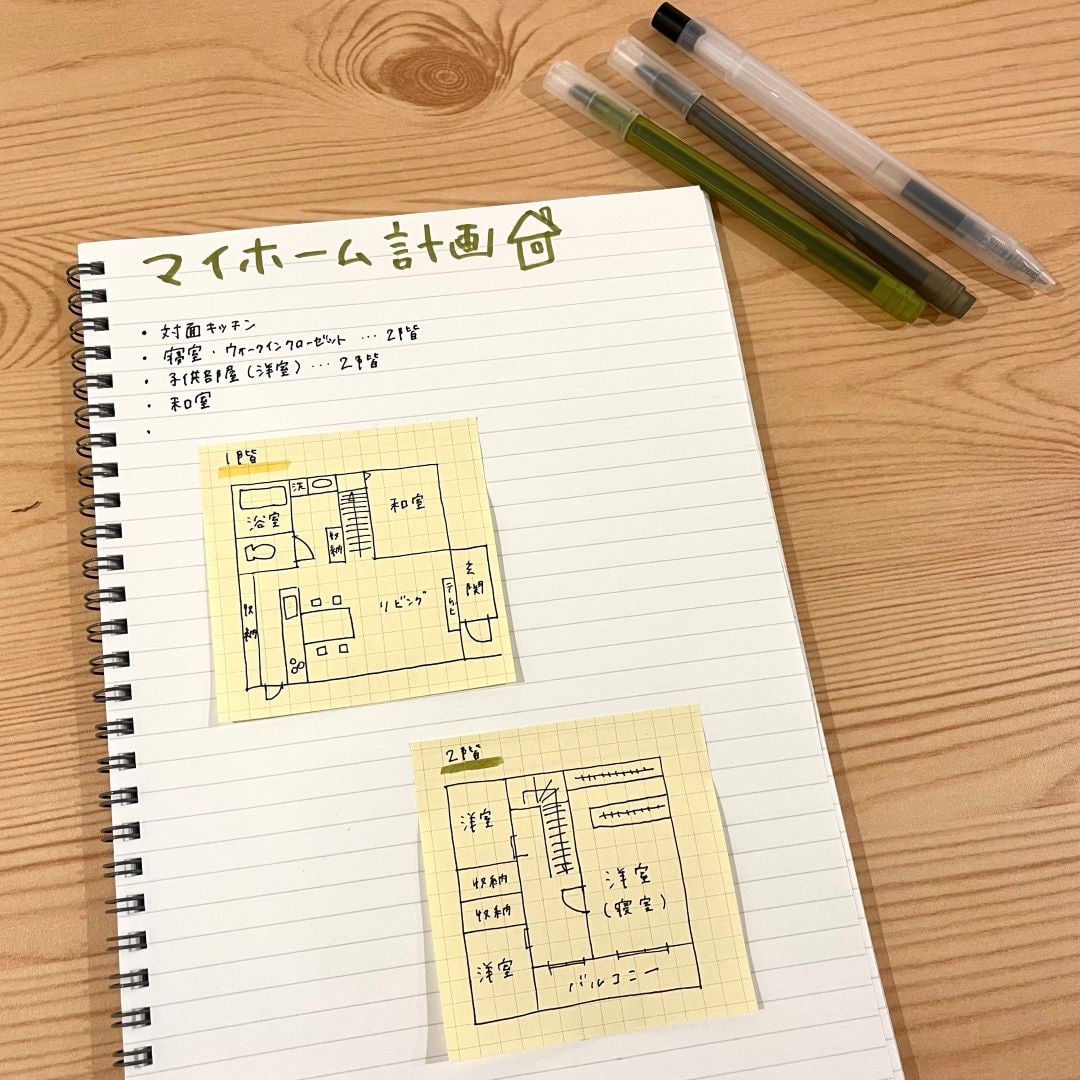 マイホーム計画
・対面キッチン
・寝室・ウォークインクローゼット…2階
・子供部屋(洋室)…2階
・和室
・
1階
洗
浴室
和室
収納
玄関
収納
リビング
テレビ
2階
洋室
収納
収納
洋室
(寝室)
洋室
バルコニー